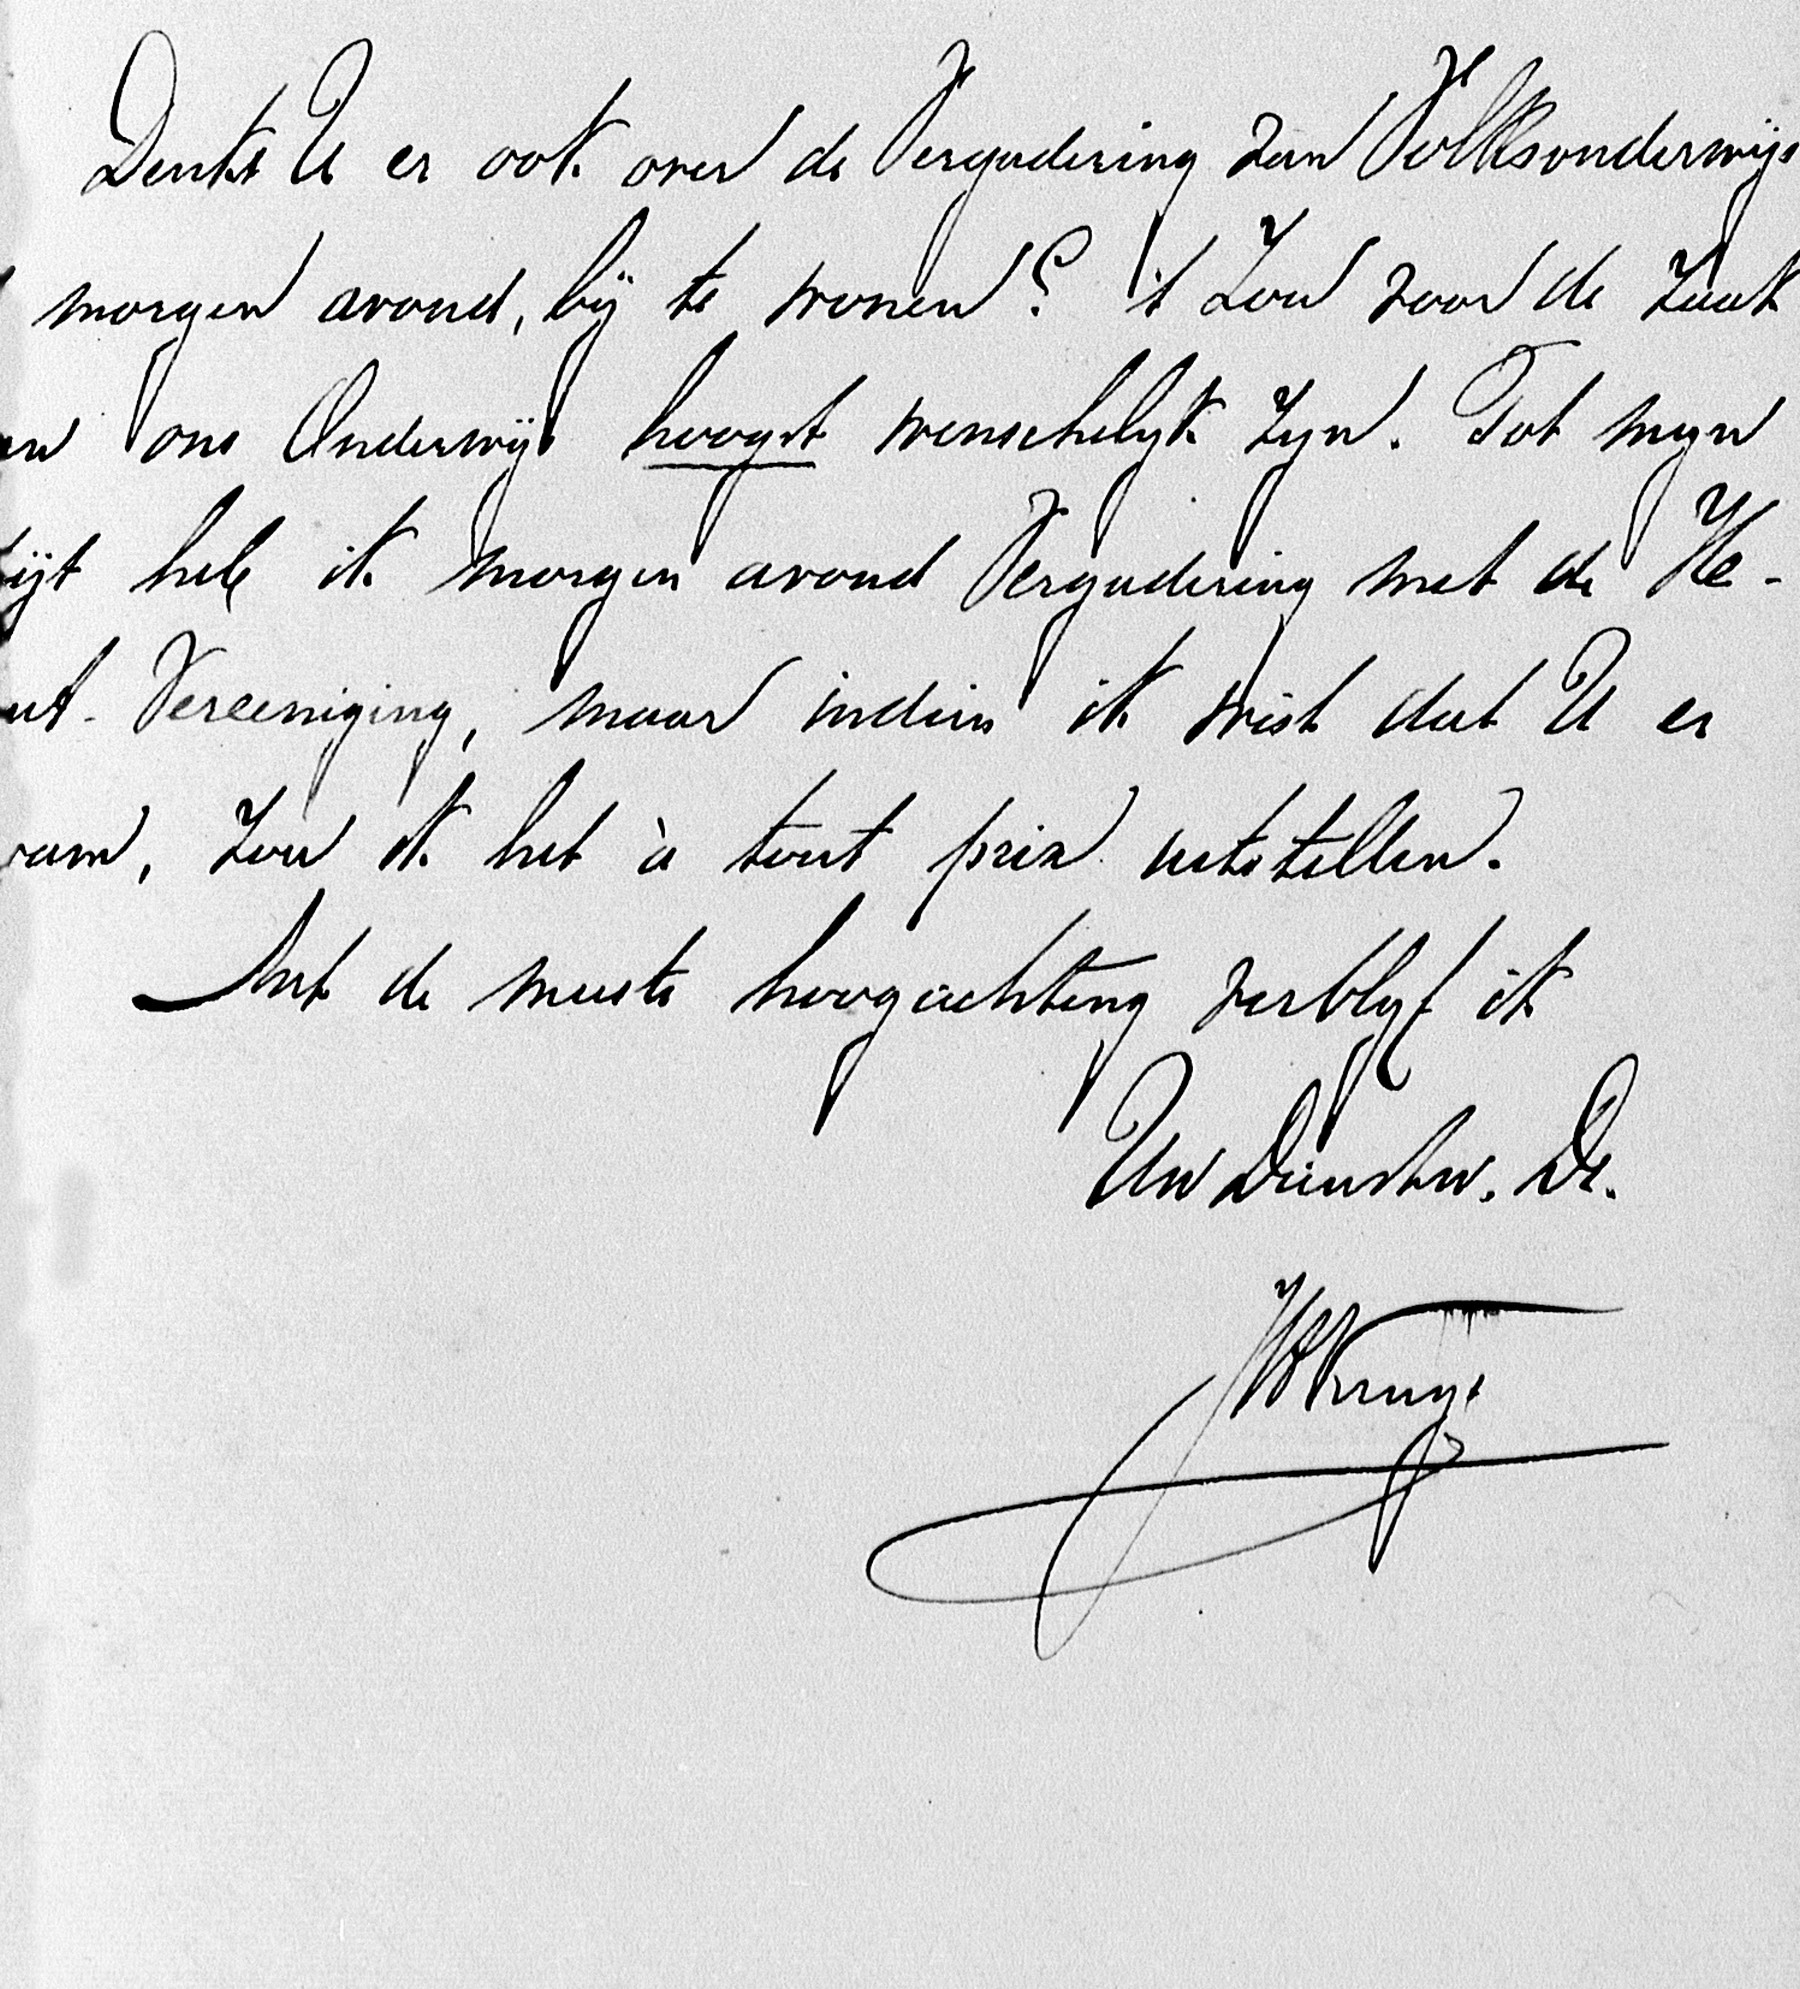 Denkt U er ook over de Vergadering van Volksonderwijs
morgen avond, bij te wonen? 't Zou voor de zaak
en ons Onderwijs hoogst wenschelijk zijn. Tot mijn
ijt heb ik morgen avond Vergadering met de He-
ut-Vereeniging, maar indien ik wist dat U er
wam, zou ik het à tout prix uitstellen.
Met de meeste hoogachting verblijf ik
Uw Dienstw. Dr.